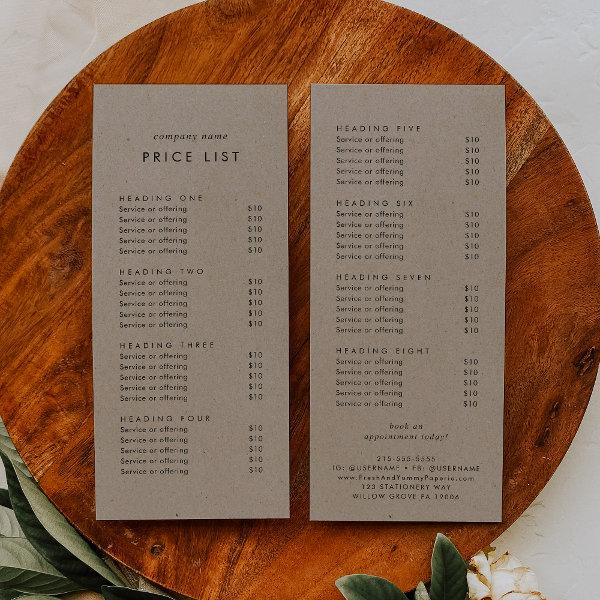 company name
PRICE LIST
HEADING ONE
Service or offering $10
Service or offering $10
Service or offering $10
Service or offering $10
Service or offering $10
HEADING TWO
Service or offering $10
Service or offering $10
Service or offering $10
Service or offering $10
Service or offering $10
HEADING THREE
Service or offering $10
Service or offering $10
Service or offering $10
Service or offering $10
Service or offering $10
HEADING FOUR
Service or offering $10
Service or offering $10
Service or offering $10
Service or offering $10
Service or offering $10
HEADING FIVE
Service or offering $10
Service or offering $10
Service or offering $10
Service or offering $10
Service or offering $10
HEADING SIX
Service or offering $10
Service or offering $10
Service or offering $10
Service or offering $10
Service or offering $10
HEADING SEVEN
Service or offering $10
Service or offering $10
Service or offering $10
Service or offering $10
Service or offering $10
HEADING EIGHT
Service or offering $10
Service or offering $10
Service or offering $10
Service or offering $10
Service or offering $10
book an
appointment today!
215-555-5555
IG: @USERNAME • FB: @USERNAME
www.FreshAndYummyPaperie.com
123 STATIONERY WAY
WILLOW GROVE PA 19006